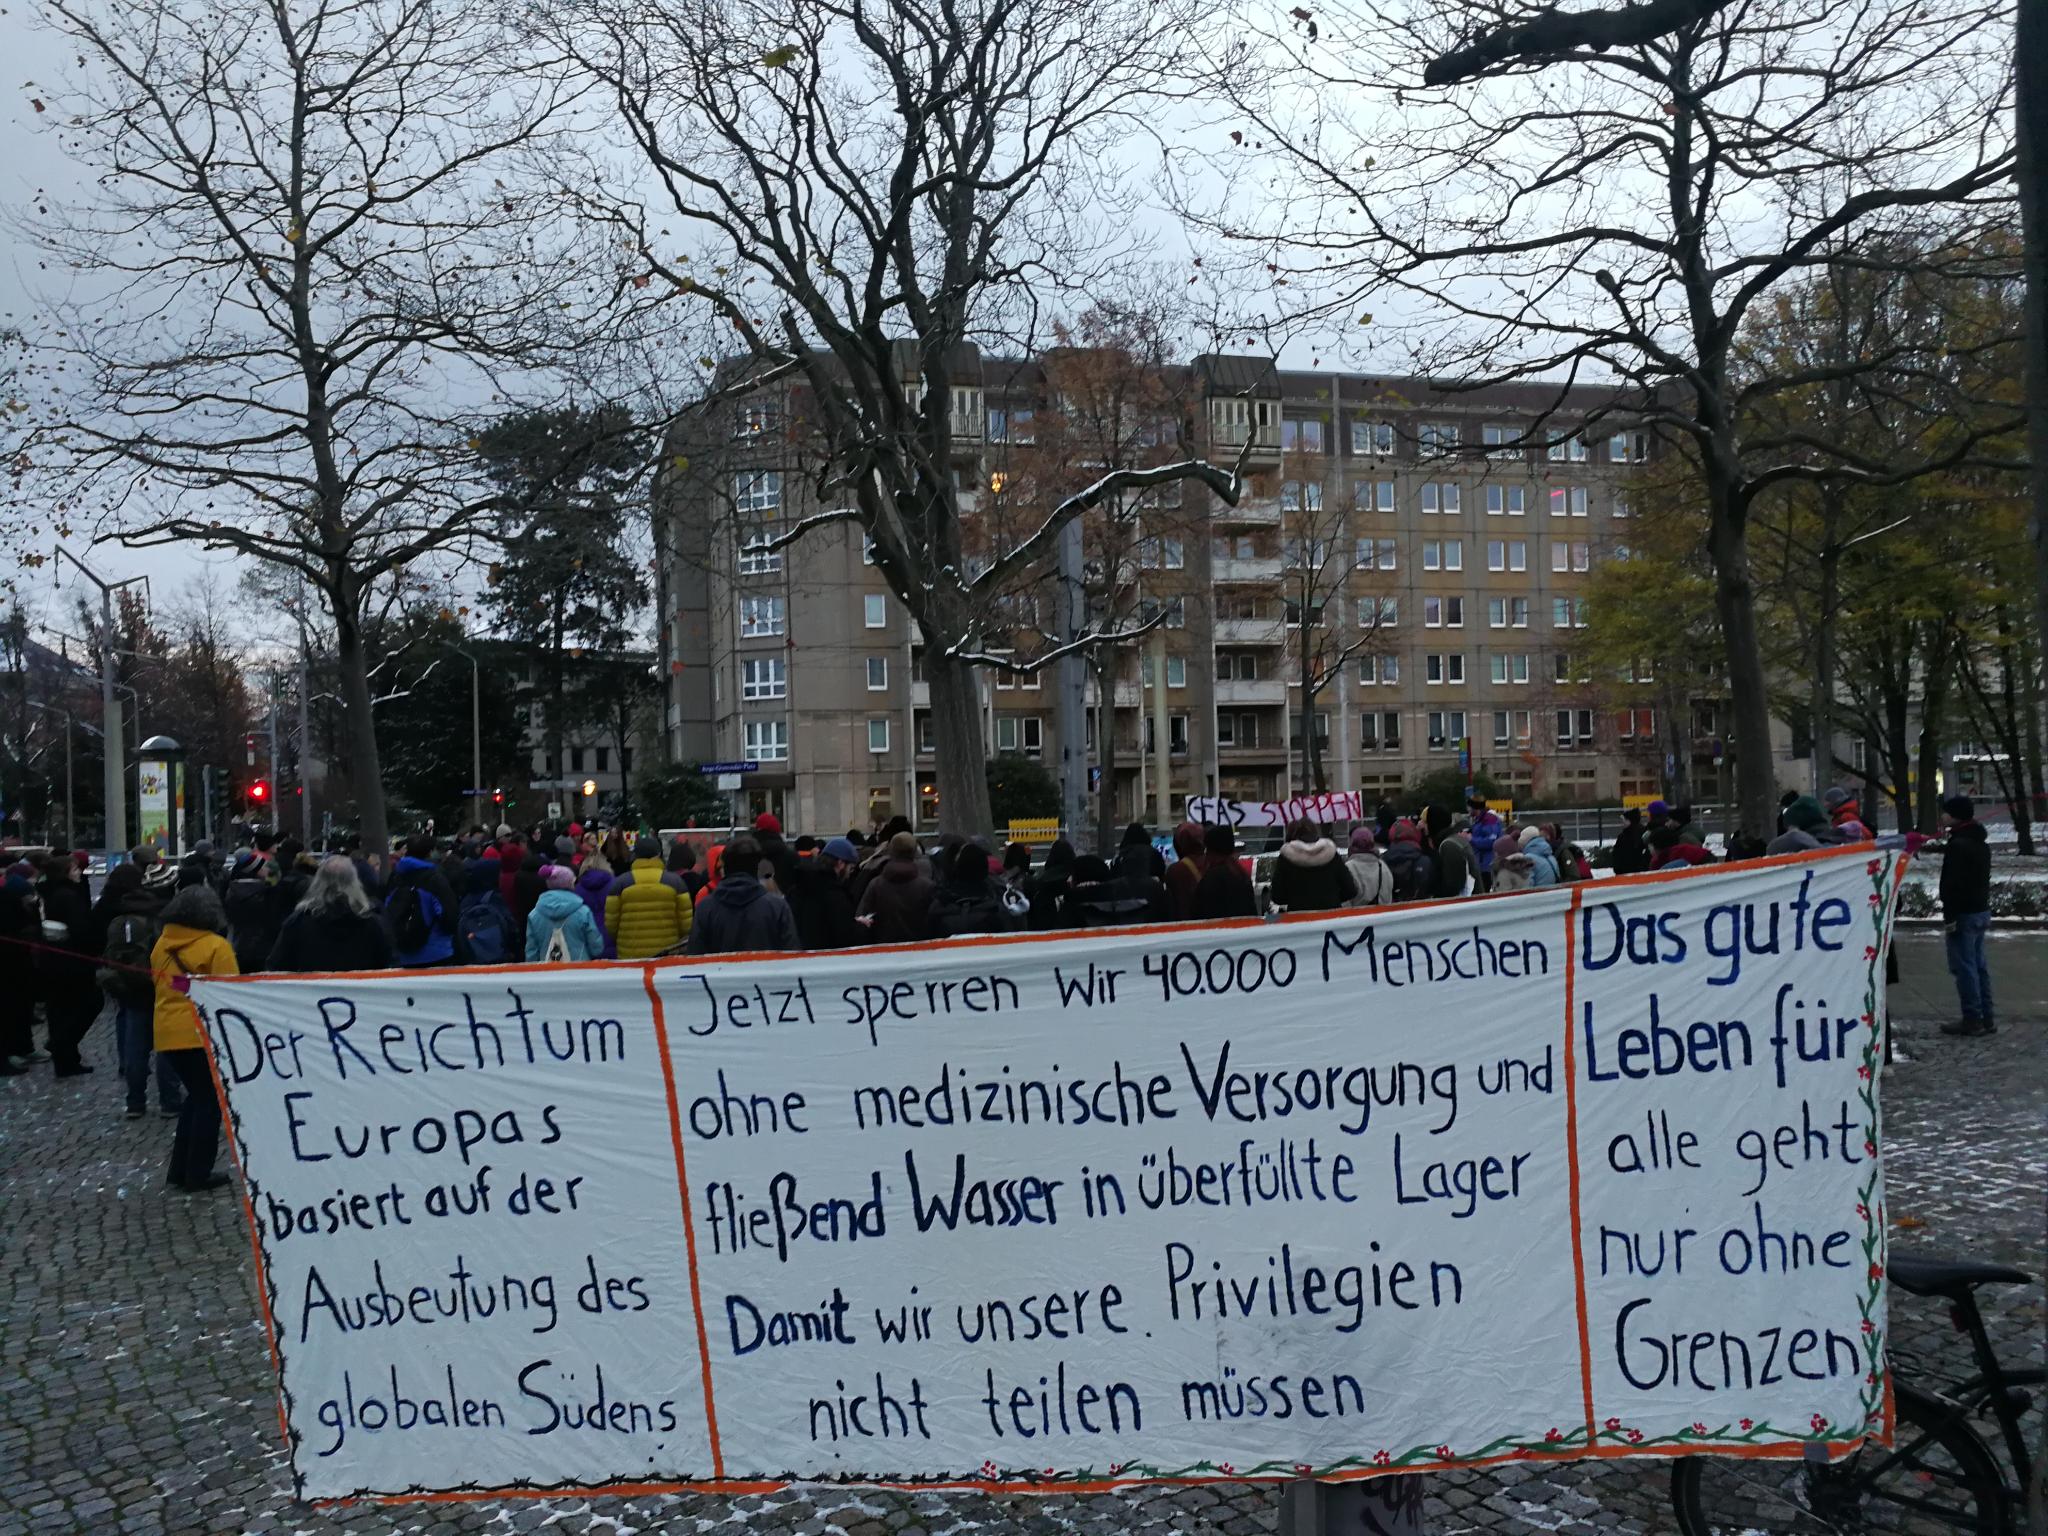 Jorge-Gomondai-Platz
GEAS STOPPEN
Der Reichtum
Europas
basiert auf der
Ausbeutung des
globalen Südens
Jetzt sperren wir 40.000 Menschen
ohne medizinische Versorgung und
fließend Wasser in überfüllte Lager
Damit wir unsere Privilegien
nicht teilen müssen
Das gute
Leben für
alle geht
nur ohne
Grenzen